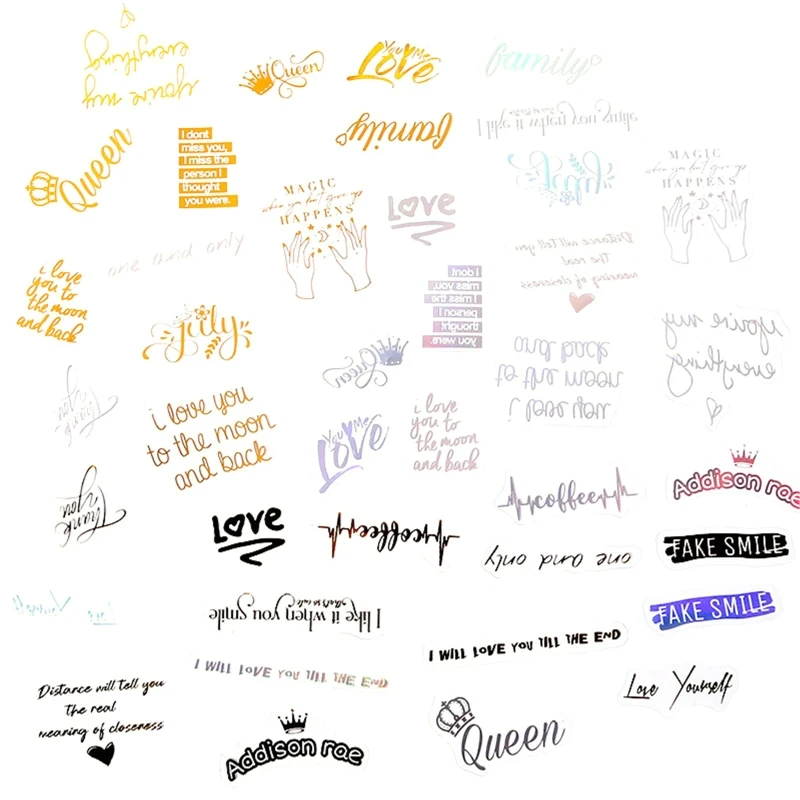 you're my
everything
Queen
You & Me
Love
family
family
I like it when you smile
Queen
I dont
miss you,
I miss the
person I
thought
you were.
MAGIC
when you don't give up
HAPPENS
Love
July
MAGIC
when you don't give up
HAPPENS
one and only
Distance will tell you
The real
meaning of closeness
i love
you to
the moon
and back
July
I dont
miss you,
I miss the
person I
thought
you were.
you're my
everything
Queen
i love you
to the moon
and back
Thank
you
i love you
to the moon
and back
You & Me
Love
i love
you to
the moon
and back
Thank
you
Love
coffee
coffee
Addison rae
one and only
FAKE SMILE
Love Yourself
I like it when you smile
that's so cute
FAKE SMILE
I WILL LOVE YOU TILL THE END
I WILL LOVE YOU TILL THE END
Love Yourself
Distance will tell you
the real
meaning of closeness
Addison rae
Queen